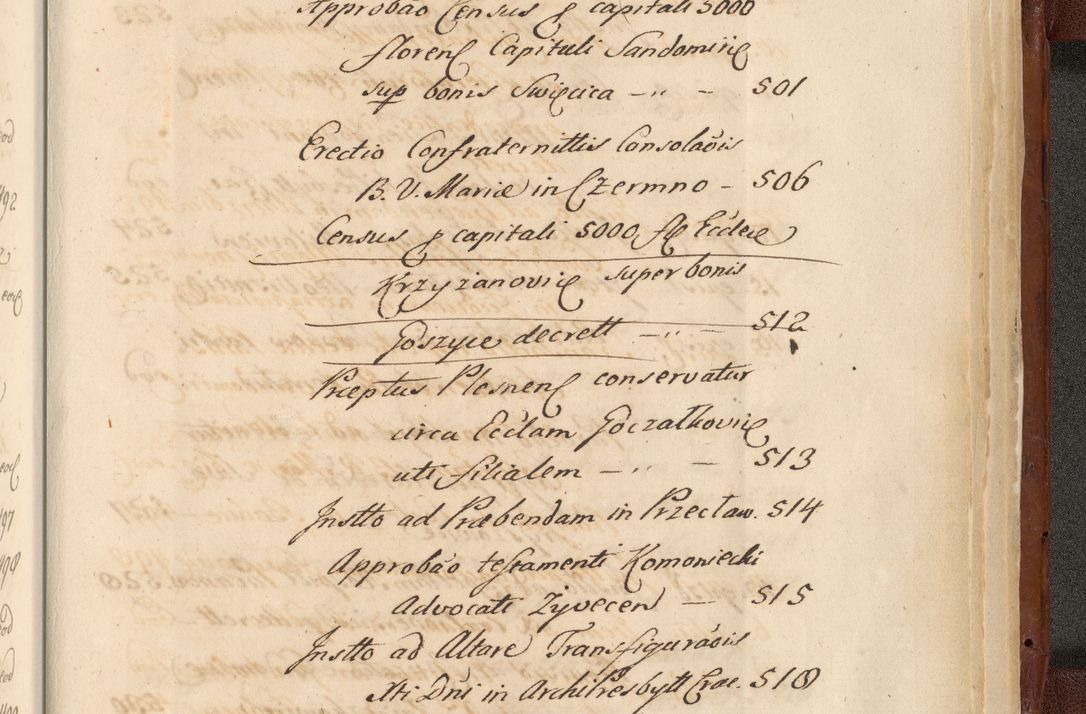 Approbao Census p capitali 5000
floren Capituli Sandomirie
sup bonis Swięcica — " — 501
Erectio Confraternittis Consolaõis
B. V. Mariæ in Czermno — 506
Census p capitali 5000 fl Eccleæ
Krzyżanovie super bonis
Goszyce decrett — " — 512
Præeptus Plesnen conservatur
circa Ecclam Goczałkovie
uti filialem — " — 513
Instto ad Præbendam in Przecław. 514
Approbão testamenti Komoniecki
Advocati Żyvecen — 515
Instto ad Altare Transfiguraõis
Xti Dñi in ArchiPresbytt Crac. 518